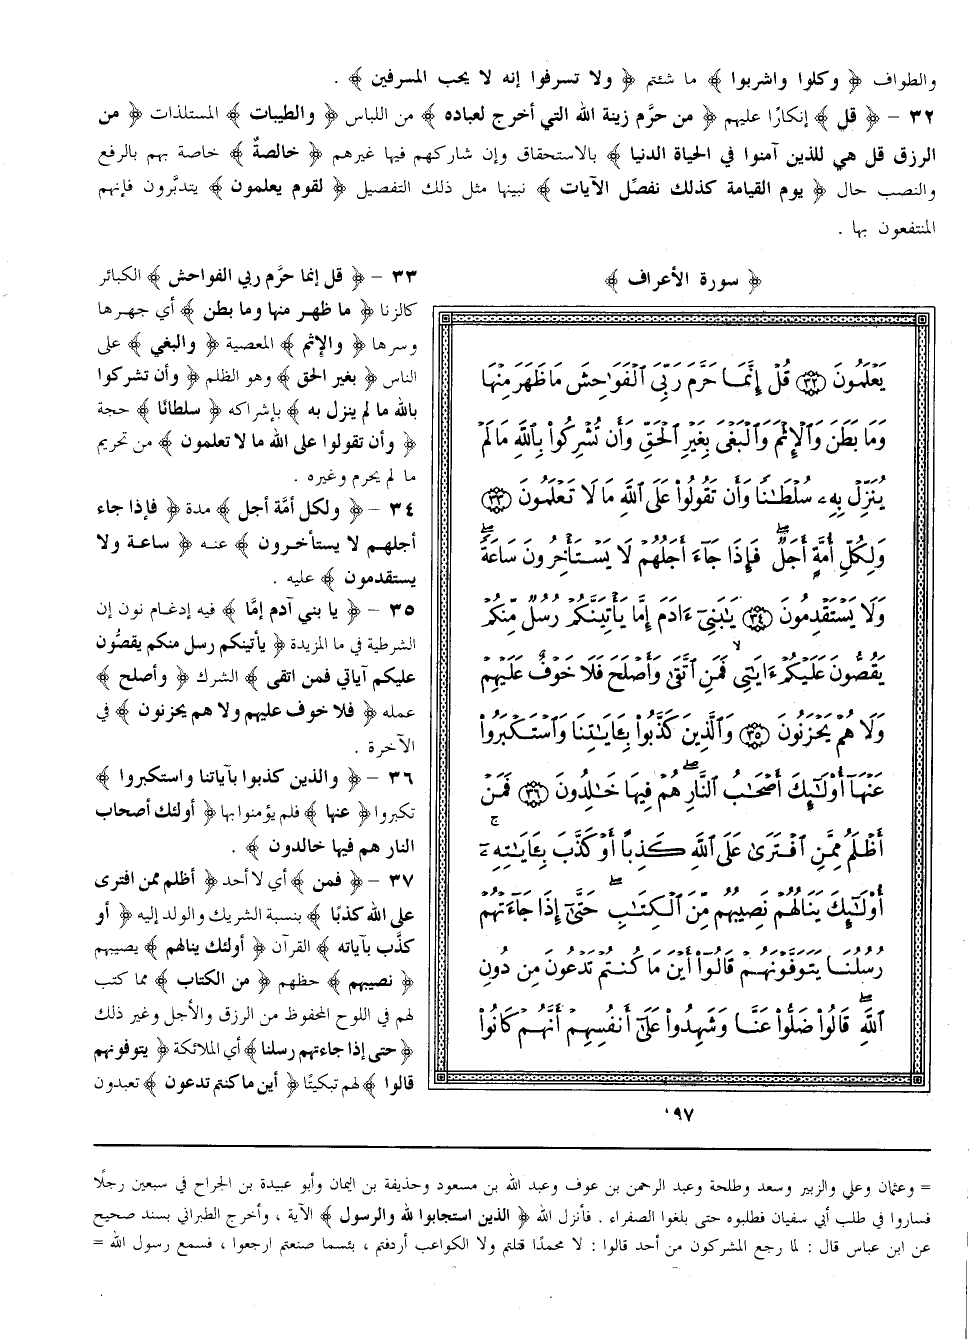 والطواف ﴿ وكلوا واشربوا ﴾ ما شئتم ﴿ ولا تسرفوا إنه لا يحب المسرفين ﴾ .
٣٢ – ﴿ قل ﴾ إنكارًا عليهم ﴿ من حرَّم زينة الله التي أخرج لعباده ﴾ من اللباس ﴿ والطيبات ﴾ المستلذات ﴿ من
الرزق قل هي للذين آمنوا في الحياة الدنيا ﴾ بالاستحقاق وإن شاركهم فيها غيرهم ﴿ خالصةٌ ﴾ خاصة بهم بالرفع
والنصب حال ﴿ يوم القيامة كذلك نفصِّل الآيات ﴾ نبينها مثل ذلك التفصيل ﴿ لقوم يعلمون ﴾ يتدبَّرون فإنهم
المنتفعون بها .
﴿ سورة الأعراف ﴾
يَعْلَمُونَ ﴿٣٢﴾ قُلْ إِنَّمَا حَرَّمَ رَبِّيَ ٱلْفَوَٰحِشَ مَا ظَهَرَ مِنْهَا
وَمَا بَطَنَ وَٱلْإِثْمَ وَٱلْبَغْىَ بِغَيْرِ ٱلْحَقِّ وَأَن تُشْرِكُوا۟ بِٱللَّهِ مَا لَمْ
يُنَزِّلْ بِهِۦ سُلْطَٰنًا وَأَن تَقُولُوا۟ عَلَى ٱللَّهِ مَا لَا تَعْلَمُونَ ﴿٣٣﴾
وَلِكُلِّ أُمَّةٍ أَجَلٌ ۖ فَإِذَا جَآءَ أَجَلُهُمْ لَا يَسْتَأْخِرُونَ سَاعَةً ۖ
وَلَا يَسْتَقْدِمُونَ ﴿٣٤﴾ يَٰبَنِىٓ ءَادَمَ إِمَّا يَأْتِيَنَّكُمْ رُسُلٌ مِّنكُمْ
يَقُصُّونَ عَلَيْكُمْ ءَايَٰتِى ۙ فَمَنِ ٱتَّقَىٰ وَأَصْلَحَ فَلَا خَوْفٌ عَلَيْهِمْ
وَلَا هُمْ يَحْزَنُونَ ﴿٣٥﴾ وَٱلَّذِينَ كَذَّبُوا۟ بِـَٔايَٰتِنَا وَٱسْتَكْبَرُوا۟
عَنْهَآ أُو۟لَٰٓئِكَ أَصْحَٰبُ ٱلنَّارِ ۖ هُمْ فِيهَا خَٰلِدُونَ ﴿٣٦﴾ فَمَنْ
أَظْلَمُ مِمَّنِ ٱفْتَرَىٰ عَلَى ٱللَّهِ كَذِبًا أَوْ كَذَّبَ بِـَٔايَٰتِهِۦٓ ۚ
أُو۟لَٰٓئِكَ يَنَالُهُمْ نَصِيبُهُم مِّنَ ٱلْكِتَٰبِ ۖ حَتَّىٰٓ إِذَا جَآءَتْهُمْ
رُسُلُنَا يَتَوَفَّوْنَهُمْ قَالُوٓا۟ أَيْنَ مَا كُنتُمْ تَدْعُونَ مِن دُونِ
ٱللَّهِ ۖ قَالُوا۟ ضَلُّوا۟ عَنَّا وَشَهِدُوا۟ عَلَىٰٓ أَنفُسِهِمْ أَنَّهُمْ كَانُوا۟
٣٣ – ﴿ قل إنما حرَّم ربي الفواحش ﴾ الكبائر
كالزنا ﴿ ما ظهر منها وما بطن ﴾ أي جهرها
وسرها ﴿ والإثم ﴾ المعصية ﴿ والبغي ﴾ على
الناس ﴿ بغير الحق ﴾ وهو الظلم ﴿ وأن تشركوا
بالله ما لم ينزل به ﴾ بإشراكه ﴿ سلطانًا ﴾ حجة
﴿ وأن تقولوا على الله ما لا تعلمون ﴾ من تحريم
ما لم يحرم وغيره .
٣٤ – ﴿ ولكل أمَّة أجل ﴾ مدة ﴿ فإذا جاء
أجلهم لا يستأخرون ﴾ عنه ﴿ ساعة ولا
يستقدمون ﴾ عليه .
٣٥ – ﴿ يا بني آدم إمَّا ﴾ فيه إدغام نون إن
الشرطية في ما المزيدة ﴿ يأتينكم رسل منكم يقصُّون
عليكم آياتي فمن اتقى ﴾ الشرك ﴿ وأصلح ﴾
عمله ﴿ فلا خوف عليهم ولا هم يحزنون ﴾ في
الآخرة .
٣٦ – ﴿ والذين كذبوا بآياتنا واستكبروا ﴾
تكبروا ﴿ عنها ﴾ فلم يؤمنوا بها ﴿ أولئك أصحاب
النار هم فيها خالدون ﴾ .
٣٧ – ﴿ فمن ﴾ أي لا أحد ﴿ أظلم ممن افترى
على الله كذبًا ﴾ بنسبة الشريك والولد إليه ﴿ أو
كذَّب بآياته ﴾ القرآن ﴿ أولئك ينالهم ﴾ يصيبهم
﴿ نصيبهم ﴾ حظهم ﴿ من الكتاب ﴾ مما كتب
لهم في اللوح المحفوظ من الرزق والأجل وغير ذلك
﴿ حتى إذا جاءتهم رسلنا ﴾ أي الملائكة ﴿ يتوفونهم
قالوا ﴾ لهم تبكيتًا ﴿ أين ما كنتم تدعون ﴾ تعبدون
١٩٧
= وعثمان وعلي والزبير وسعد وطلحة وعبد الرحمن بن عوف وعبد الله بن مسعود وحذيفة بن اليمان وأبو عبيدة بن الجراح في سبعين رجلًا
فساروا في طلب أبي سفيان فطلبوه حتى بلغوا الصفراء . فأنزل الله ﴿ الذين استجابوا لله والرسول ﴾ الآية ، وأخرج الطبراني بسند صحيح
عن ابن عباس قال : لما رجع المشركون من أحد قالوا : لا محمدًا قتلتم ولا الكواعب أردفتم ، بئسما صنعتم ارجعوا ، فسمع رسول الله =